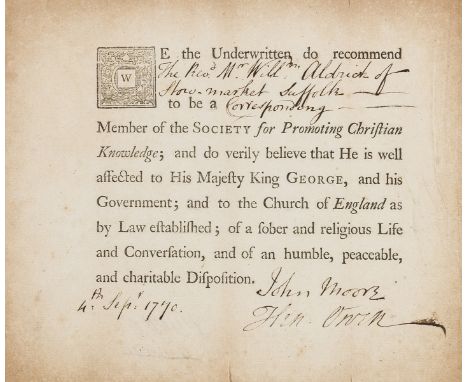 WE the Underwritten do recommend
The Revd. Mr. Willm. Aldrich of
Stow-market Suffolk
to be a Corresponding
Member of the SOCIETY for Promoting Chriſtian
Knowledge; and do verily believe that He is well
affected to His Majeſty King GEORGE, and his
Government; and to the Church of England as
by Law eſtabliſhed; of a ſober and religious Life
and Converſation, and of an humble, peaceable,
and charitable Diſpoſition.
John Moore
4th. Sepr. 1770.
Hen. Owen